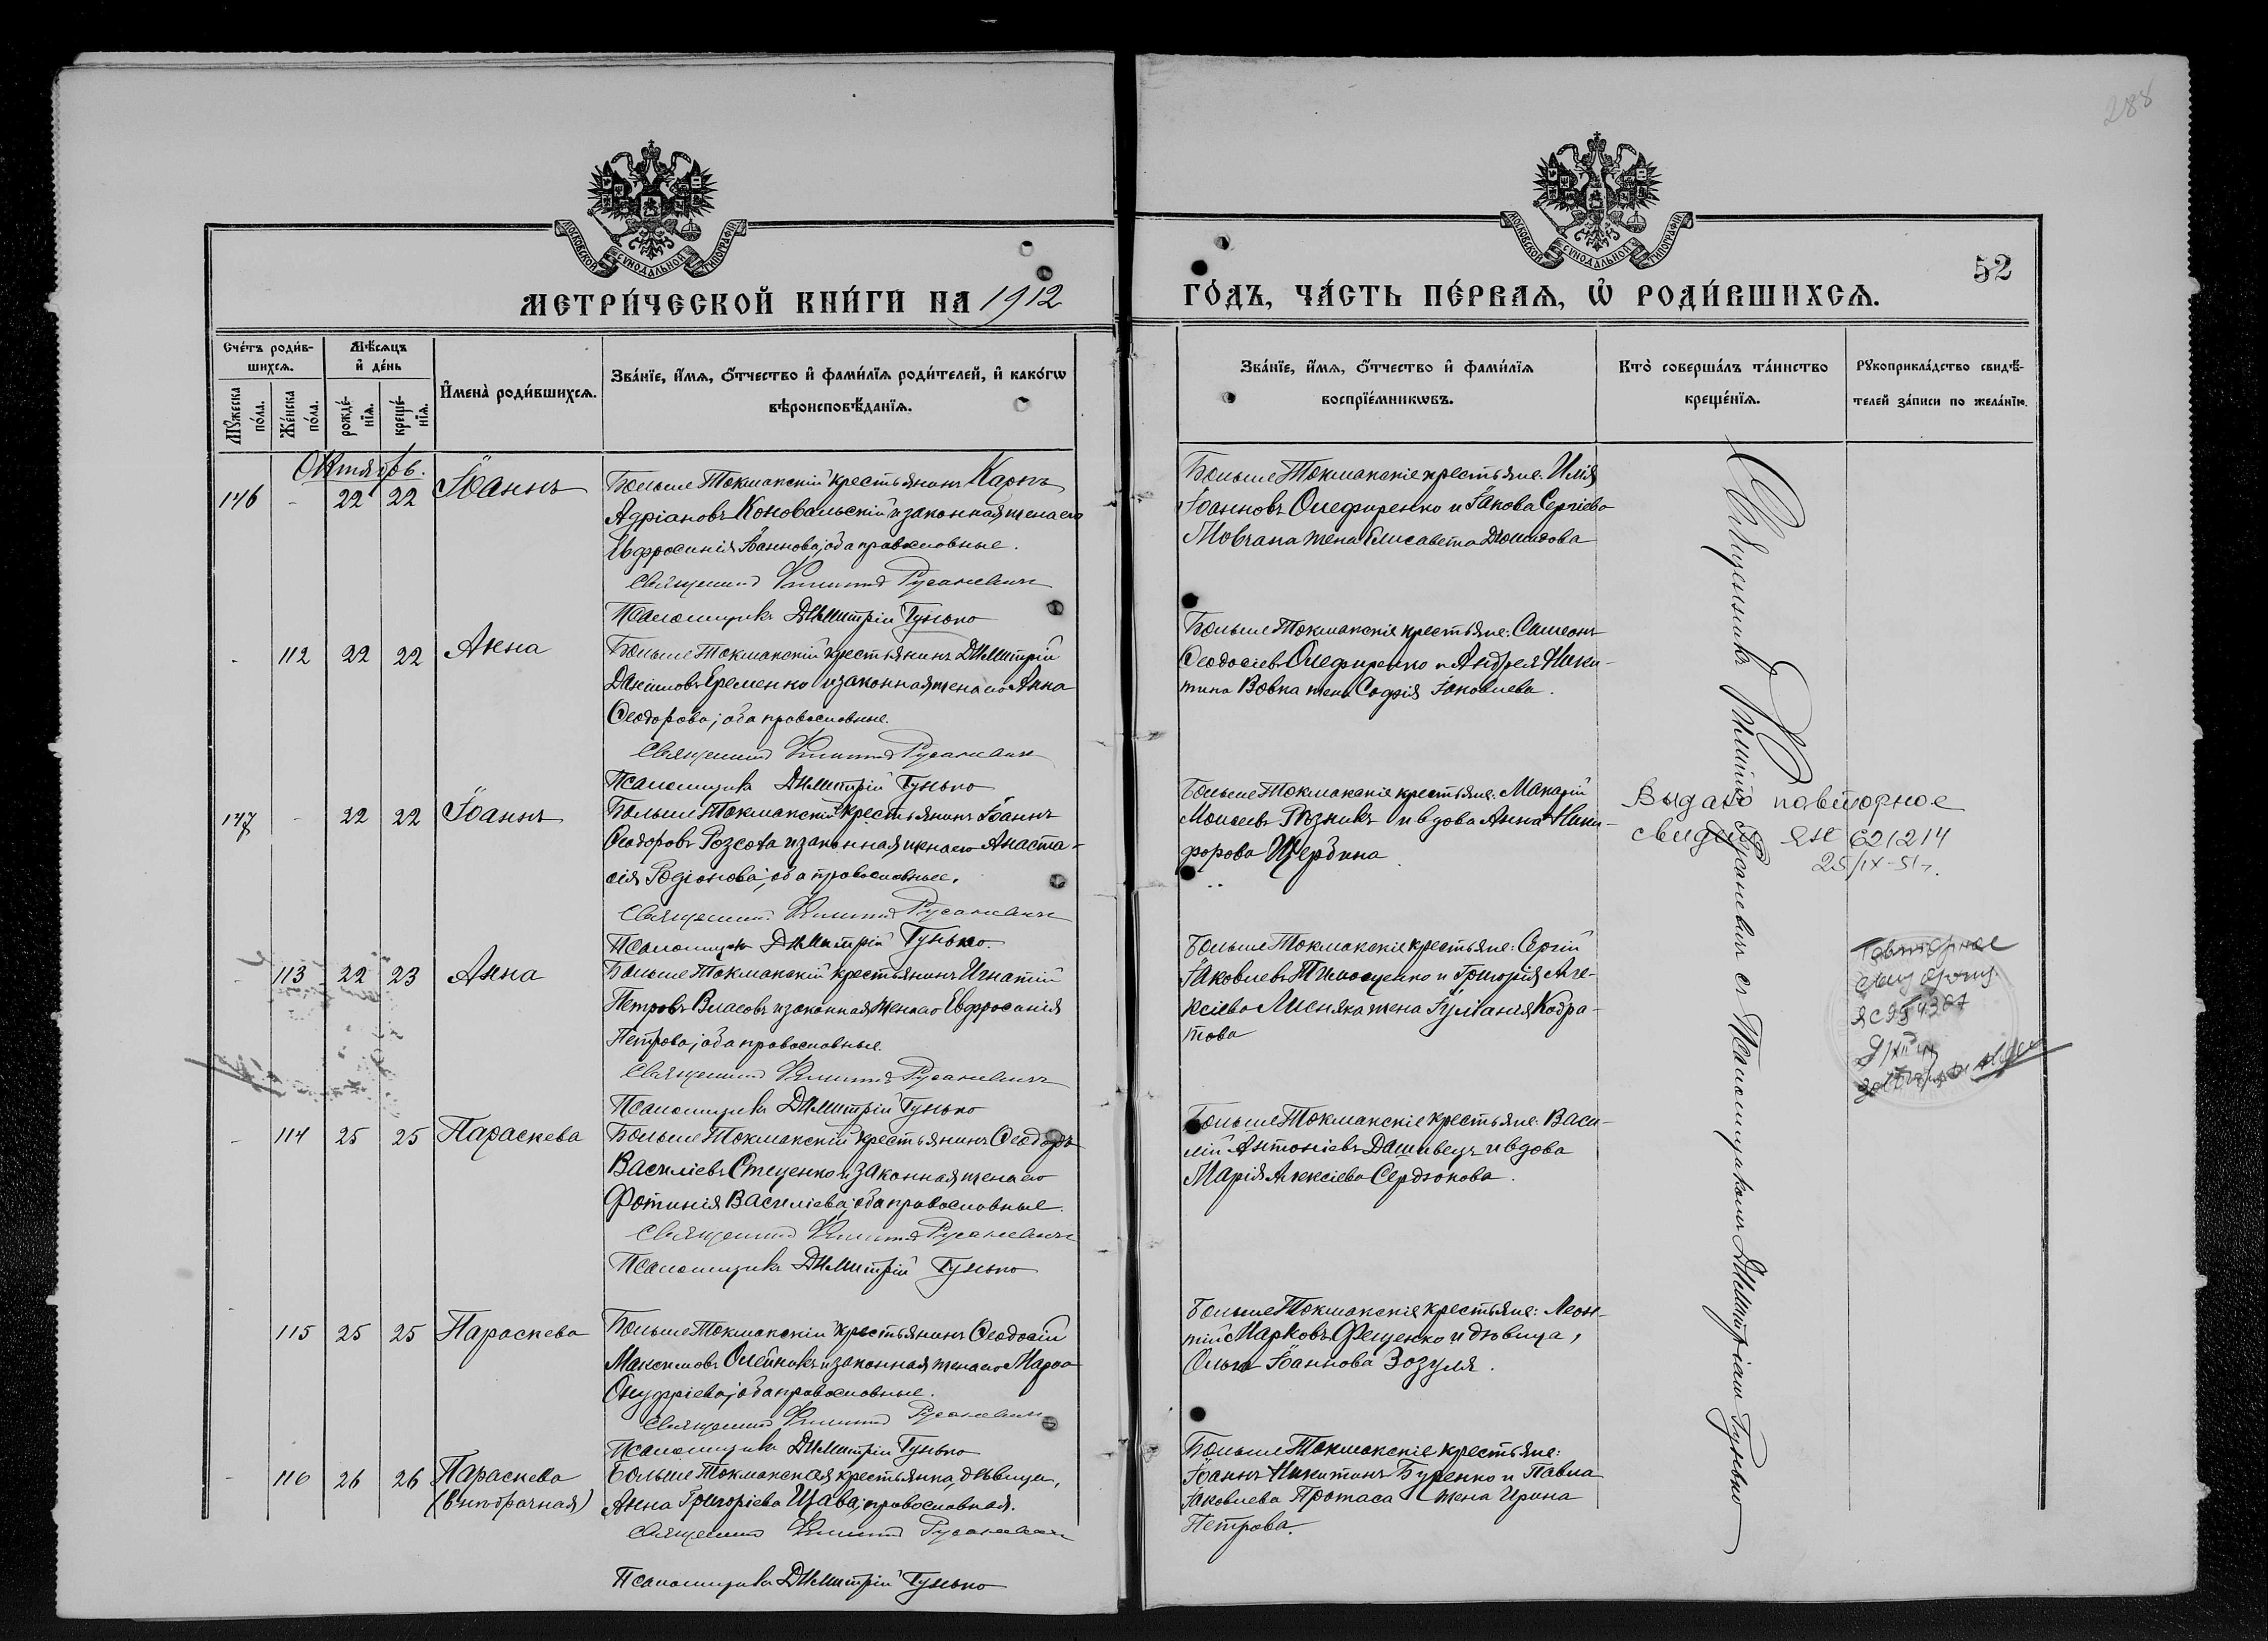 288
МОСКОВСКОЙ СѴНОДАЛЬНОЙ ТИПОГРАФІИ
МОСКОВСКОЙ СѴНОДАЛЬНОЙ ТИПОГРАФІИ
52
МЕТРИ́ЧЕСКОЙ КНИ́ГИ НА 1912
ГО́ДЪ, ЧА́СТЬ ПЕ́РВАѦ, Ѡ҆ РОДИ́ВШИХСѦ.
Сче́тъ роди́в-
шихсѧ.
Мѣ́сѧцъ
и҆ де́нь
Мꙋ́жеска
по́ла.
Же́нска
по́ла.
рожде́-
нїѧ.
креще́-
нїѧ.
И҆мена̀ роди́вшихсѧ.
Зва́нїе, и҆́мѧ, ѻ҆́тчество и҆ фами́лїѧ роди́телей, и҆ како́гѡ
вѣроисповѣ́данїѧ.
Зва́нїе, и҆́мѧ, ѻ҆́тчество и҆ фами́лїѧ
воспрїе́мникѡвъ.
Кто̀ соверша́лъ та́инство
креще́нїѧ.
Рꙋкоприкла́дство свидѣ́-
телей за́писи по жела́нїю.
Октябрь.
146 - 22 22 Іоаннъ
Больше Токмакскій крестьянинъ Карпъ
Адріановъ Коновальскій и законная жена его
Евфросинія Іоаннова; оба православные.
Священникъ Русаневичъ
Псаломщикъ Димитрій Гунько
Больше Токмакскіе крестьяне: Илія
Іоанновъ Олефиренко и Іакова Сергіева
Мовчана жена Елисавета Діомидова
- 112 22 22 Анна
Больше Токмакскій крестьянинъ Димитрій
Даніиловъ Еременко и законная жена его Анна
Ѳеодорова; оба православные.
Священникъ Русаневичъ
Псаломщикъ Димитрій Гунько
Больше Токмакскіе крестьяне: Симеонъ
Ѳеодосіевъ Олефиренко и Андрея Ники-
тина Вовка жена Софія Іаковлева.
147 - 22 22 Іоаннъ
Больше Токмакскій крестьянинъ Іоаннъ
Ѳеодоровъ Розсоха и законная жена его Анаста-
сія Родіонова; оба православные.
Священникъ Русаневичъ
Псаломщикъ Димитрій Гунько.
Больше Токмакскіе крестьяне: Макарій
Моисеевъ Рѣзникъ и вдова Анна Ники-
форова Щербина
Выдано повторное
свид. ЯН 621214
25/IX-51г.
- 113 22 23 Анна
Больше Токмакскій крестьянинъ Игнатій
Петровъ Власовъ и законная жена его Евфросинія
Петрова; оба православные.
Священникъ Русаневичъ
Псаломщикъ Димитрій Гунько
Больше Токмакскіе крестьяне: Сергій
Іаковлевъ Тимошенко и Григорія Але-
ксіева Лисняка жена Іуліанія Кодра-
това
Повторное
- 114 25 25 Параскева
Больше Токмакскій крестьянинъ Ѳеодоръ
Василіевъ Стеценко и законная жена его
Фотинія Василіева; оба православные.
Священникъ Русаневичъ
Псаломщикъ Димитрій Гунько
Больше Токмакскіе крестьяне: Васи-
лій Антоніевъ Дашивецъ и вдова
Марія Алексіева Сердюкова.
- 115 25 25 Параскева
Больше Токмакскій крестьянинъ Ѳеодосій
Максимовъ Олейникъ и законная жена его Марѳа
Онуфріева; оба православные.
Священникъ Русаневичъ
Псаломщикъ Димитрій Гунько
Больше Токмакскіе крестьяне: Леон-
тій Марковъ Фещенко и дѣвица,
Ольга Іоаннова Зозуля.
- 116 26 26 Параскева
(внѣбрачная)
Больше Токмакская крестьянка, дѣвица,
Анна Григоріева Щава; православная.
Священникъ Русаневичъ
Псаломщикъ Димитрій Гунько
Больше Токмакскіе крестьяне:
Іоаннъ Никитинъ Буренко и Павла
Іаковлева Протаса жена Ирина
Петрова.
Священникъ Русаневичъ съ Псаломщикомъ Димитріемъ Гунько